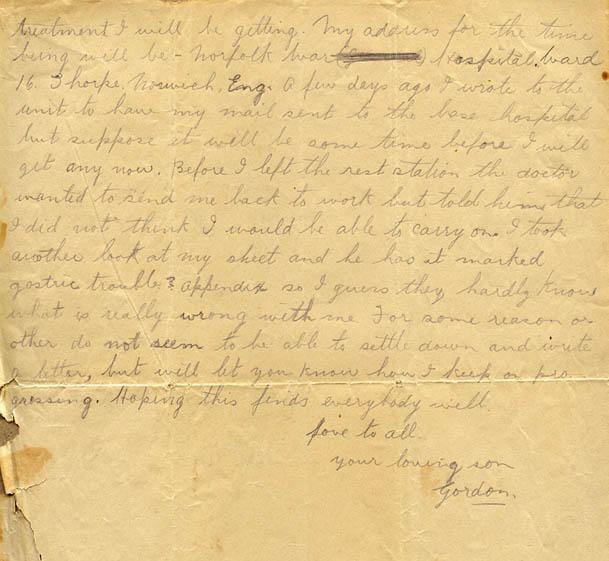 treatment I will be getting. My address for the time
being will be - Norfolk War Hospital, Ward
16. Thorpe, Norwich, Eng. A few days ago I wrote to the
unit to have my mail sent to the base hospital
but suppose it will be some time before I will
get any now. Before I left the rest station the doctor
wanted to send me back to work but told him that
I did not think I would be able to carry on. I took
another look at my sheet and he has it marked
gastric trouble ? appendix so I guess they hardly know
what is really wrong with me For some reason or
other do not seem to be able to settle down and write
a letter, but will let you know how I keep on pro
gressing. Hoping this finds everybody well.
Love to all.
Your loving son
Gordon.